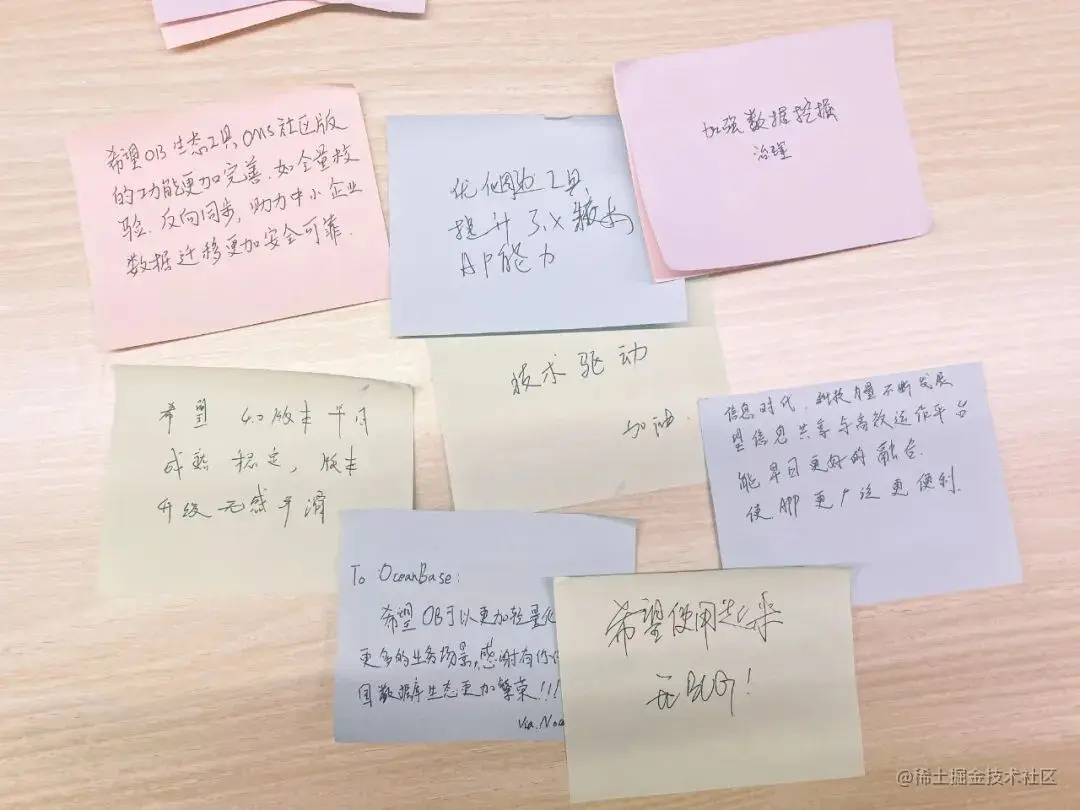 希望OB生态工具OMS社区版
的功能更加完善.如全量校
验.反向同步,助力中小企业
数据迁移更加安全可靠.
优化周边工具
提升3.x版本
AP能力
加强数据挖掘
治理
希望 4.0版本早日
成熟 稳定,版本
升级无感平滑
技术驱动
加油.
信息时代.科技力量不断发展
望信息共享与高效运作平台
能早日更好的融合.
使APP更广泛更便利.
To OceanBase:
希望OB可以更加轻量化
更多的业务场景,感谢有你
国数据库生态更加繁荣!!!
Via.
希望使用起来
无BUG!
@稀土掘金技术社区